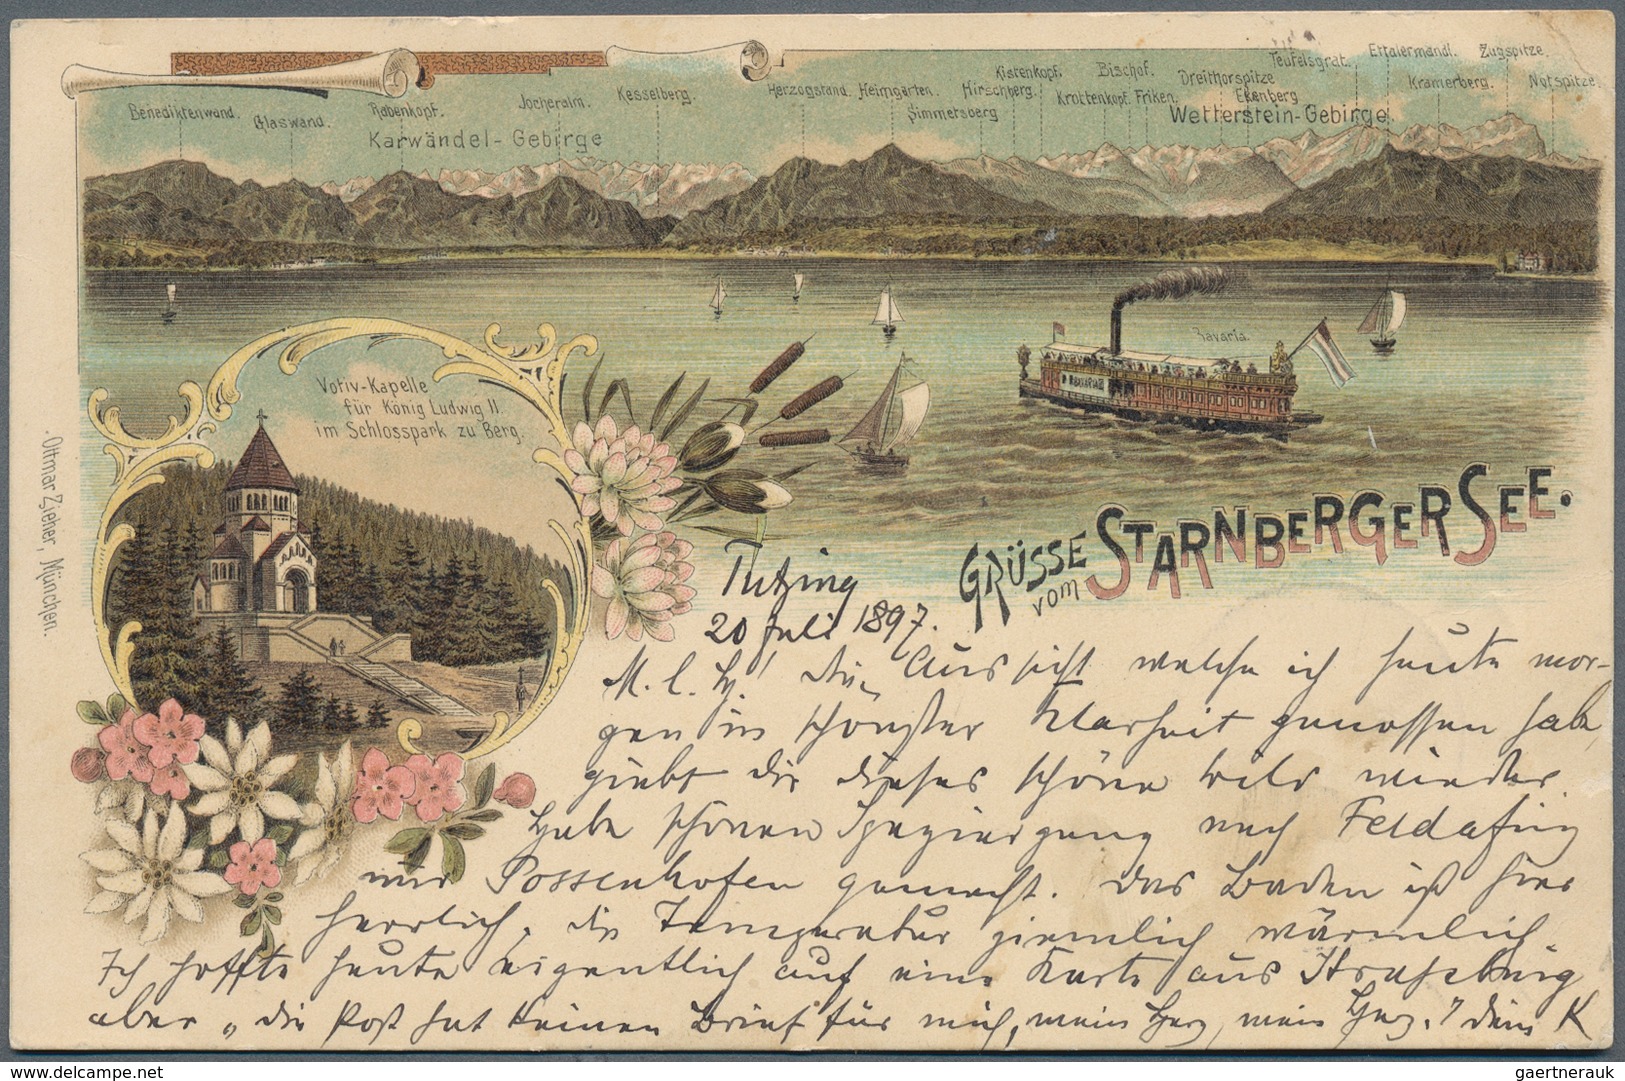 Teufelsgrat. Ettalermandl. Zugspitze.
Kistenkopf. Bischof. Dreithorspitze Kramerberg. Notspitze.
Benediktenwand. Glaswand. Rabenkopf. Jocheralm. Kesselberg. Herzogstand. Heimgarten. Hirschberg. Krottenkopf. Friken. Ekenberg
Simmetsberg
Karwändel-Gebirge
Wetterstein-Gebirge.
Bavaria.
BAVARIA
Votiv-Kapelle
für König Ludwig II.
im Schlosspark zu Berg.
Ottmar Zieher, München.
GRÜSSE
vom STARNBERGER SEE.
Tutzing
20 Juli 1897.
M. l. H.! Die Aussicht welche ich heute mor-
gen in schönster Klarheit genossen habe,
giebt dir dieses schöne Bild wieder.
Habe schönen Spaziergang nach Feldafing
und Possenhofen gemacht. Das Baden ist hier
herrlich, die Temperatur ziemlich wärmlich.
Ich hoffte heute eigentlich auf eine Karte aus Strassburg
aber „die Post hat keinen Brief für mich, mein Herz, mein Herz." dein K
delcampe.net
gaertnerauk